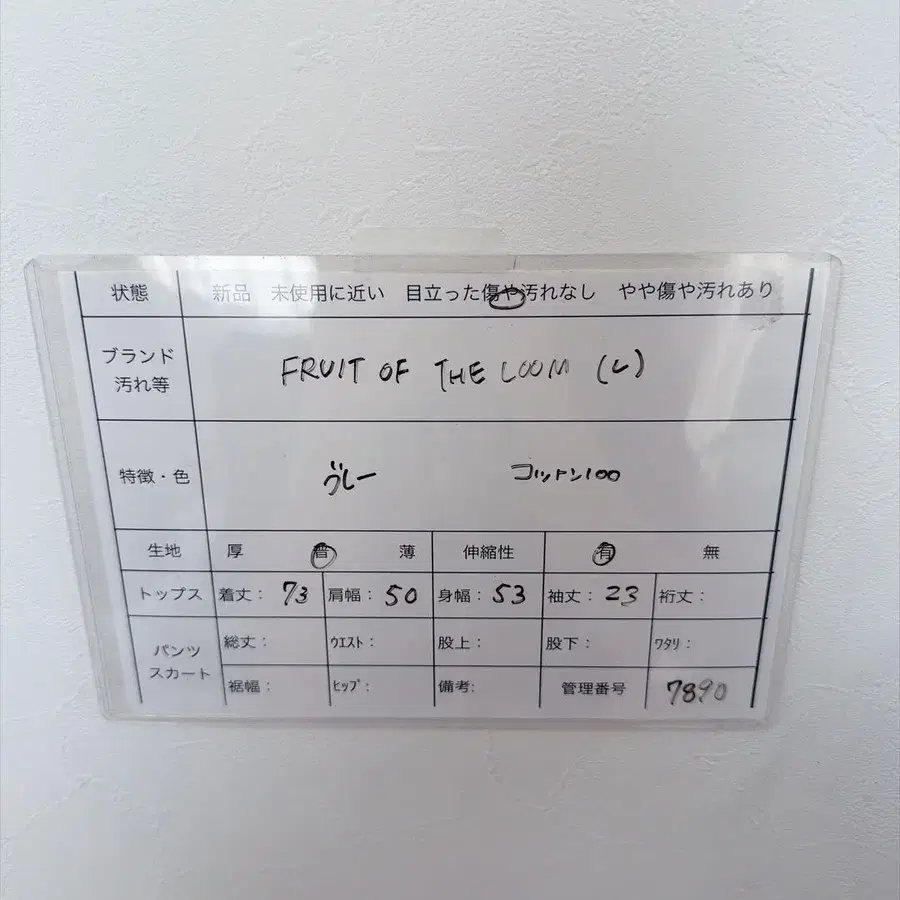 状態 新品 未使用に近い 目立った傷や汚れなし やや傷や汚れあり
ブランド
汚れ等
FRUIT OF THE LOOM (L)
特徴・色 グレー コットン100
生地 厚 普 薄 伸縮性 有 無
トップス 着丈: 73 肩幅: 50 身幅: 53 袖丈: 23 裄丈:
パンツ
スカート
総丈: ウエスト: 股上: 股下: ワタリ:
裾幅: ヒップ: 備考: 管理番号 7890